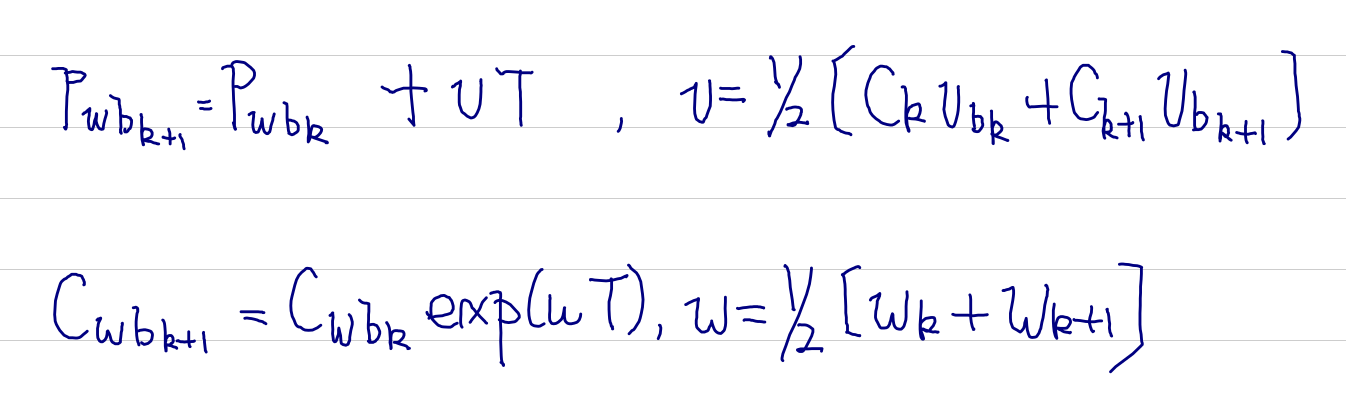 P_{wb_{k+1}} = P_{wb_k} + vT , v = 1/2 [C_k v_{b_k} + C_{k+1} v_{b_{k+1}}]
C_{wb_{k+1}} = C_{wb_k} exp(wT), w = 1/2 [w_k + w_{k+1}]